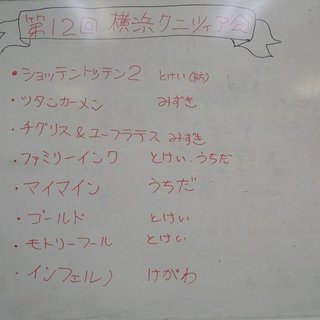 第12回 横浜クニツィア会
・ショッテントッテン2 とけい(防)
・ツタンカーメン みずき
・チグリス&ユーフラテス みずき
・ファミリーインク とけい・うちだ
・マイマイン うちだ
・ゴールド とけい
・モトリーフール とけい
・インフェルノ けがわ